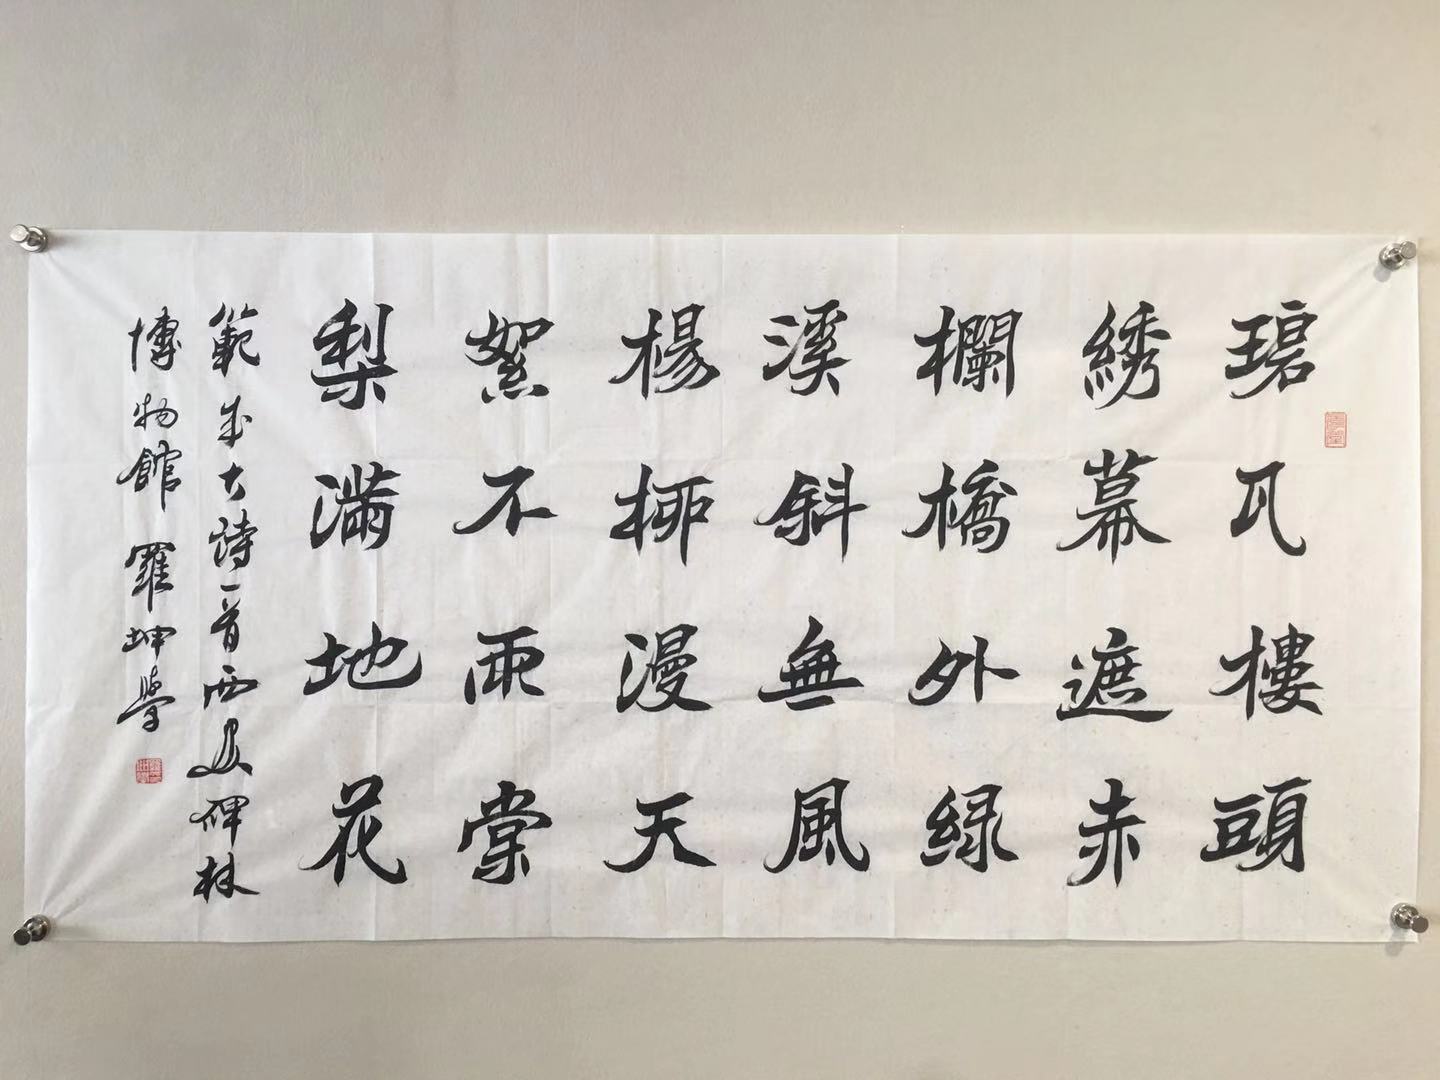 碧瓦樓頭
綉幕遮赤
欄橋外緑
溪斜無風
楊柳漫天
絮不雨棠
梨滿地花
範成大詩一首西安碑林
博物館羅坤學